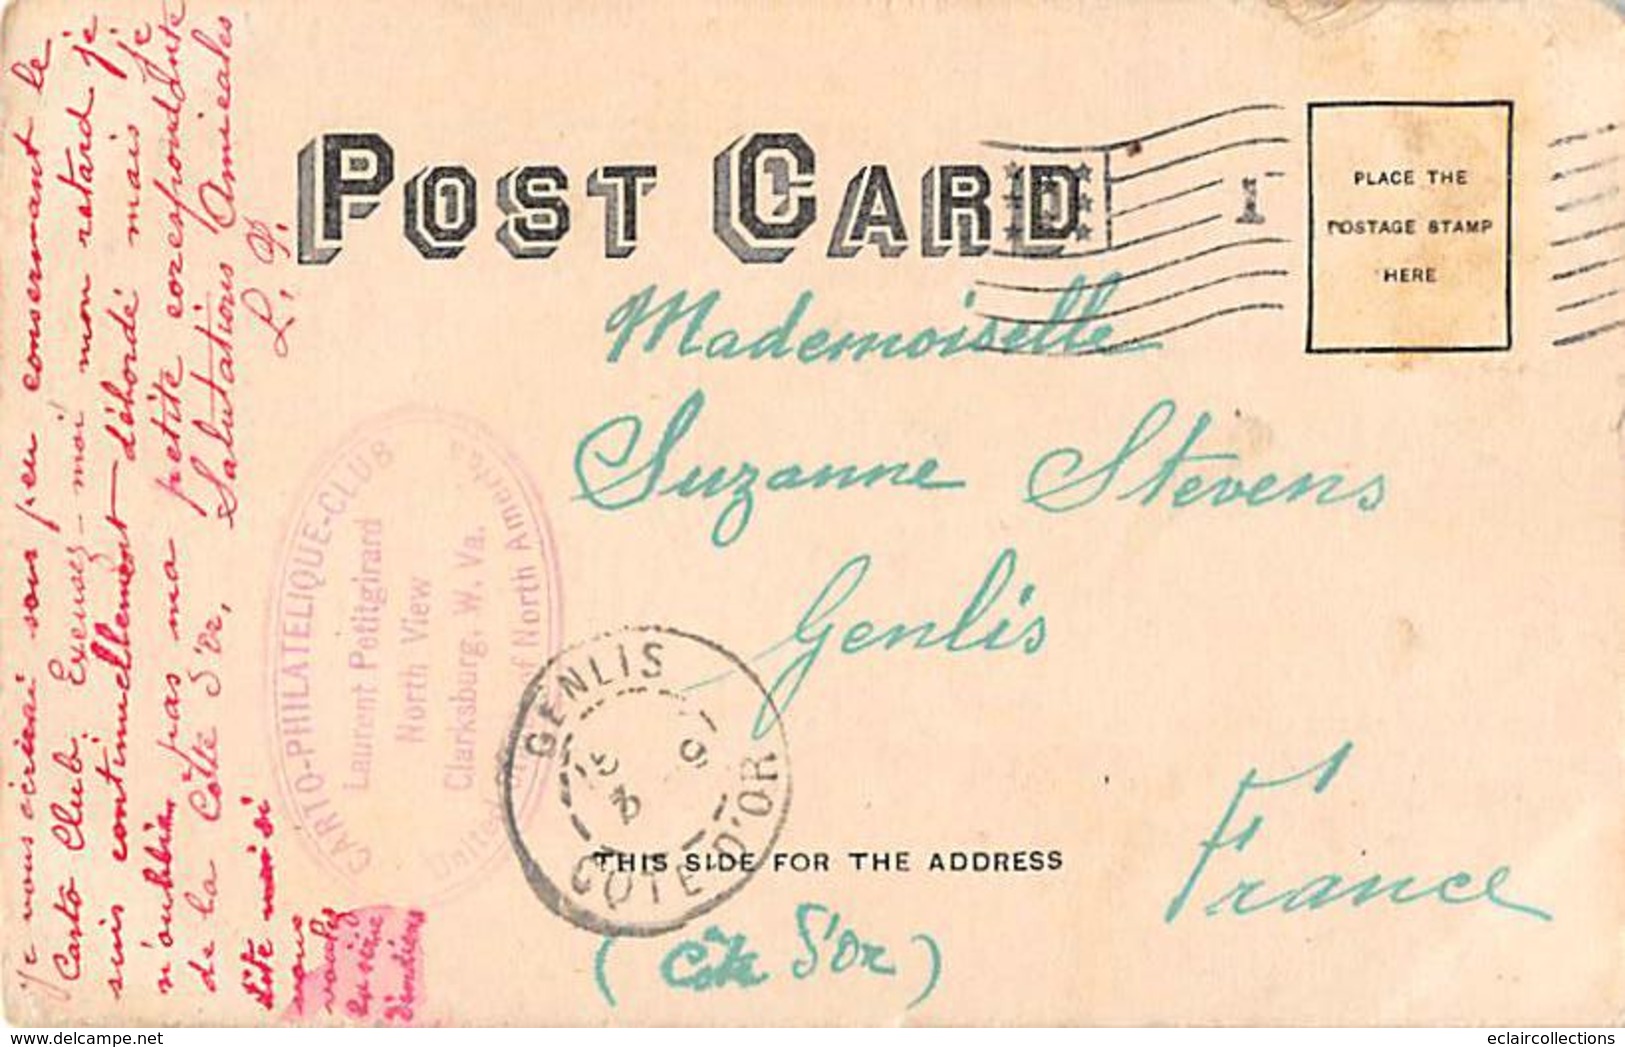 POST CARD
1
PLACE THE
POSTAGE STAMP
HERE
Mademoiselle
Suzanne Stevens
Genlis
France
(Côte d'Or)
THIS SIDE FOR THE ADDRESS
GENLIS
COTE D'OR
CARTO-PHILATELIQUE-CLUB
Laurent Petitgirard
North View
Clarksburg, W. Va.
United of North America
Je vous écrirai sous peu consernant le
Carto Club. Excusez-moi mon retard je
suis continuellement débordé mais je
n'oublie pas ma petite correspondante
de la Côte d'or,
Salutations Amicales
L. P.
Dite moi si
vous
voulez
la série
d'indiens
eclaircollections